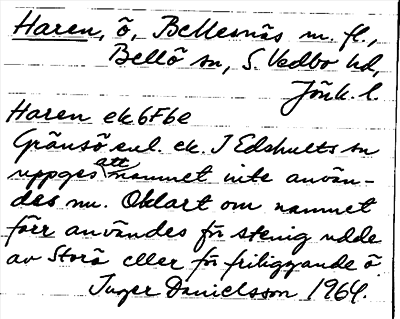 Haren, ö, Bellesnäs m. fl.,
Bellö sn, S. Vedbo hd,
Jönk. l.
Haren ek 6F6e
Gränsö enl. ek. I Edshults sn
uppges att namnet inte använ-
des nu. Oklart om namnet
förr användes för stenig udde
av Storö eller för friliggande ö.
Inger Danielsson 1964.